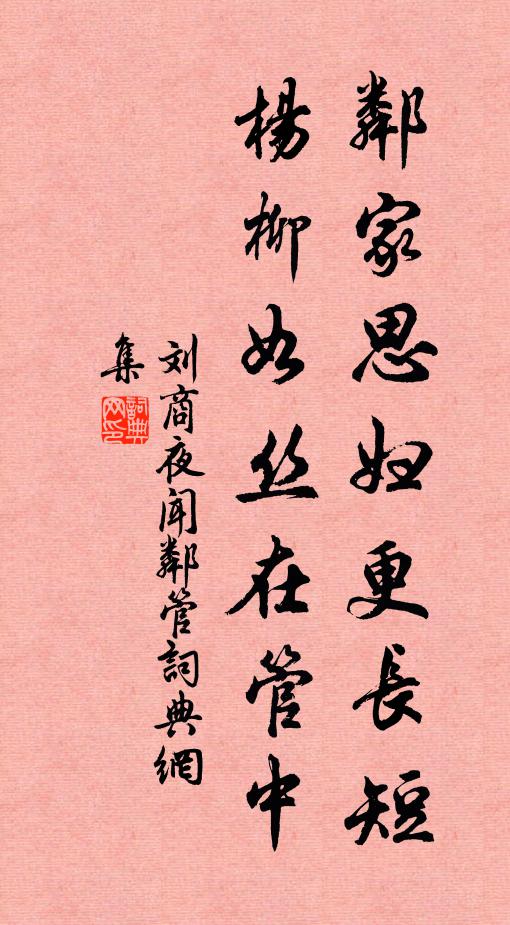 鄰家思婦更長短
楊柳如丝在管中
刘商夜闻鄰管詞典網
集
詞典网印